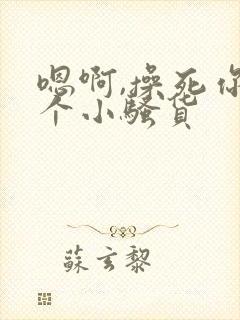 嗯啊,操死你
个小骚货
苏玄黎